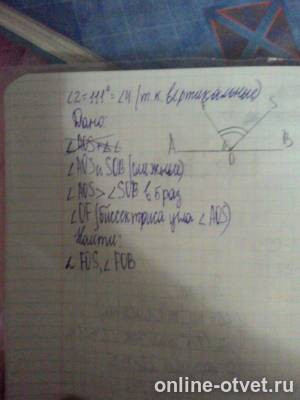 ∠2=111°=∠4 (т.к. вертикальные)
Дано:
∠AOS и SOB (смежные)
∠AOS > ∠SOB в 6 раз
∠OF (биссектриса угла ∠AOS)
Найти:
∠FOS, ∠FOB
S
A
B
O
online-otvet.ru